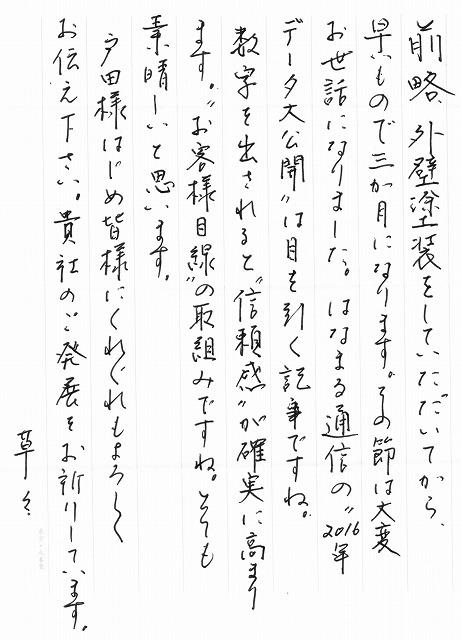 前略、外壁塗装をしていただいてから、
早いもので三か月になります。その節は大変
お世話になりました。はなまる通信の〝2016年
データ大公開〟は目を引く記事ですね。
数字を出されると〝信頼感〟が確実に高まり
ます。〝お客様目線〟の取組みですね。とても
素晴しいと思います。
戸田様はじめ皆様にくれぐれもよろしく
お伝え下さい。貴社のご発展をお祈りしています。
草々